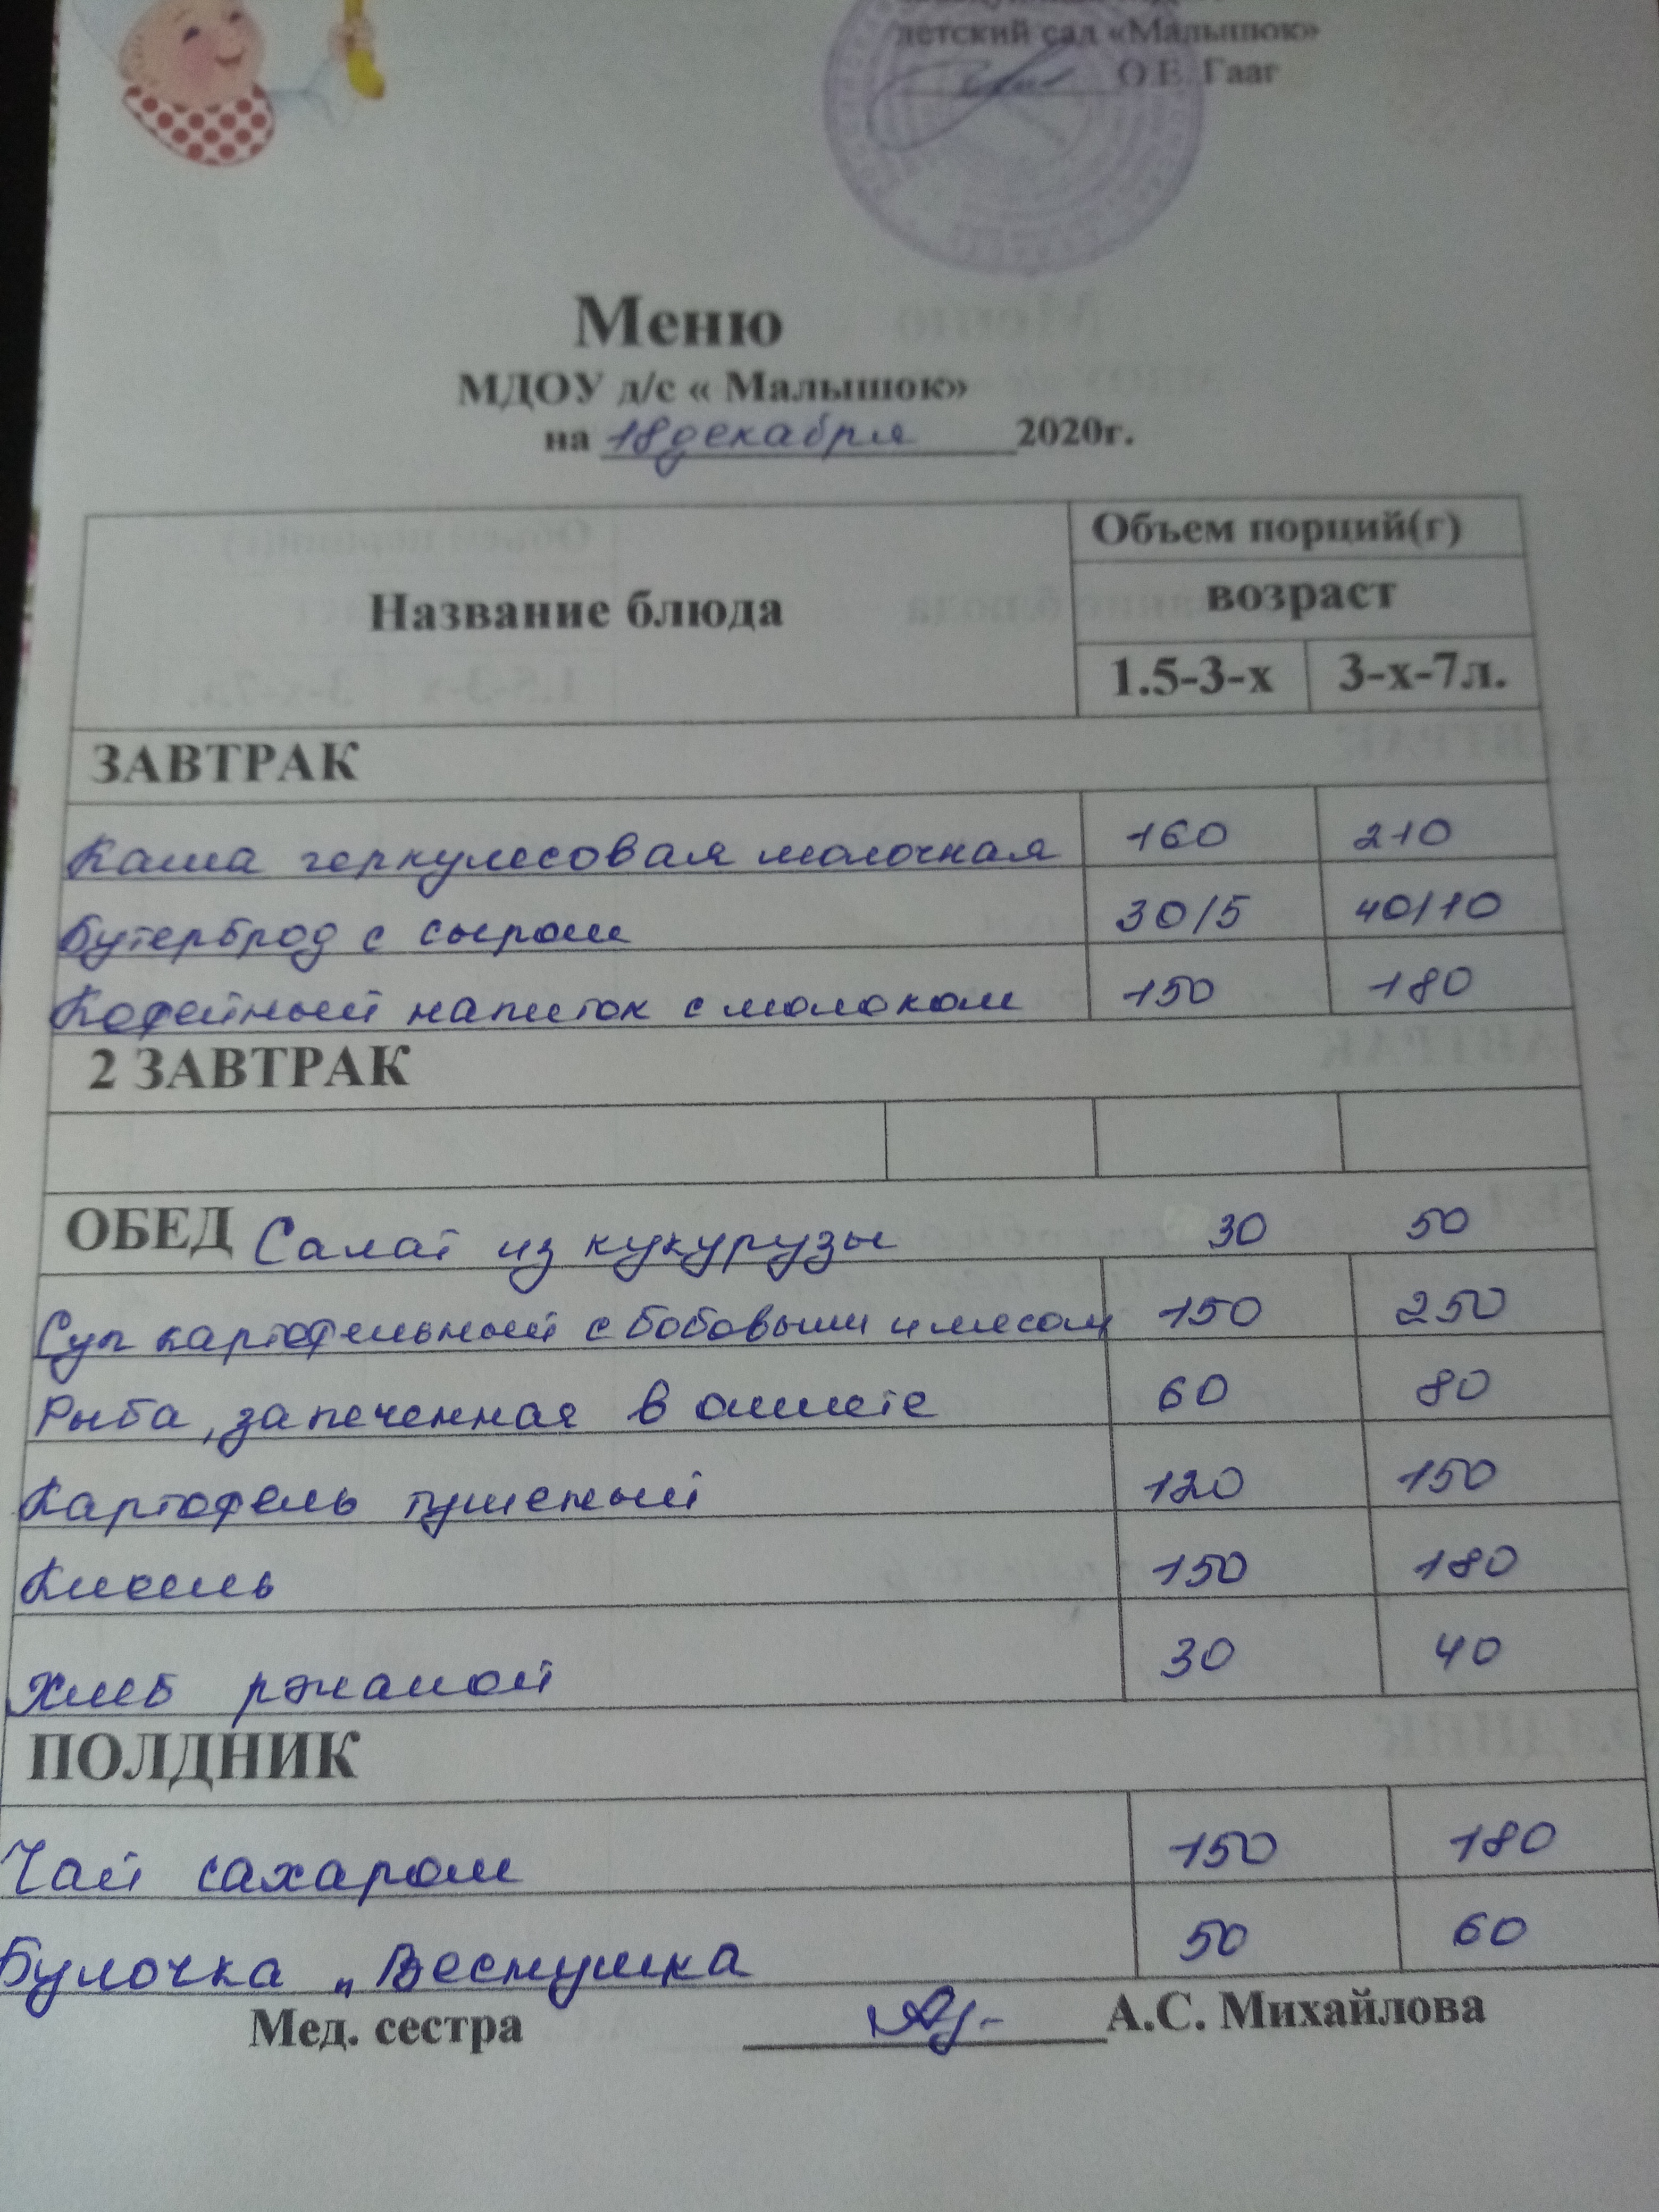 детский сад «Малышок»
О.Е. Гааг
Меню
МДОУ д/с « Малышок»
на 18 декабря 2020г.
Название блюда
Объем порций(г)
возраст
1.5-3-х 3-х-7л.
ЗАВТРАК
Каша геркулесовая молочная 160 210
Бутерброд с сыром 30/5 40/10
Кофейный напиток с молоком 150 180
2 ЗАВТРАК
ОБЕД Салат из кукурузы 30 50
Суп картофельный с бобовыми и мясом 150 250
Рыба, запеченная в омлете 60 80
Картофель тушеный 120 150
Кисель 150 180
Хлеб ржаной 30 40
ПОЛДНИК
Чай сахаром 150 180
Булочка „Веснушка 50 60
Мед. сестра А.С. Михайлова